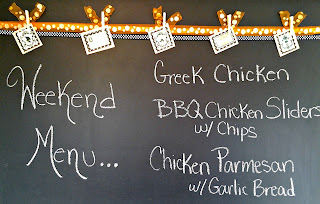 Weekend
Menu...
Greek Chicken
BBQ Chicken Sliders
w/ Chips
Chicken Parmesan
w/ Garlic Bread